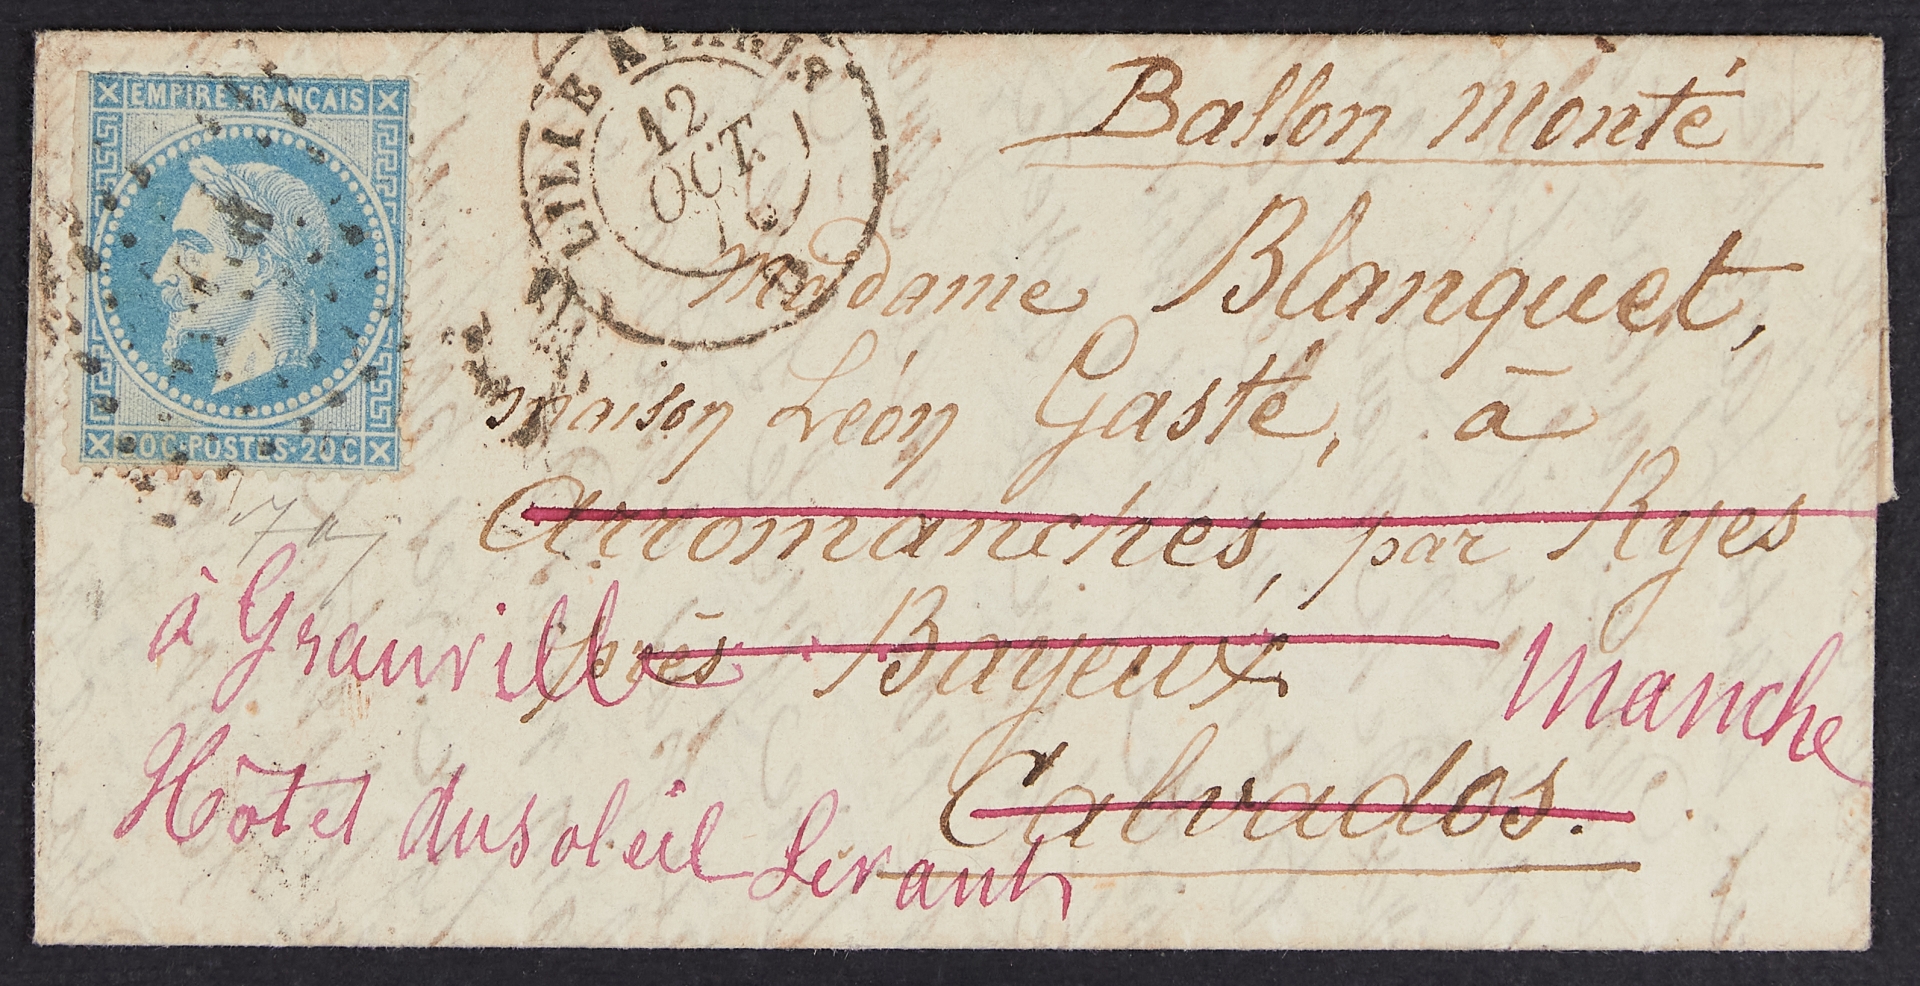 EMPIRE FRANCAIS
20C·POSTES·20C
12
OCT.
Ballon monté
Madame Blanquet,
maison Léon Gasté, à
Arromanches, par Ryes
près Bayeux
Calvados.
à Granville
Manche
Hôtel du soleil Levant